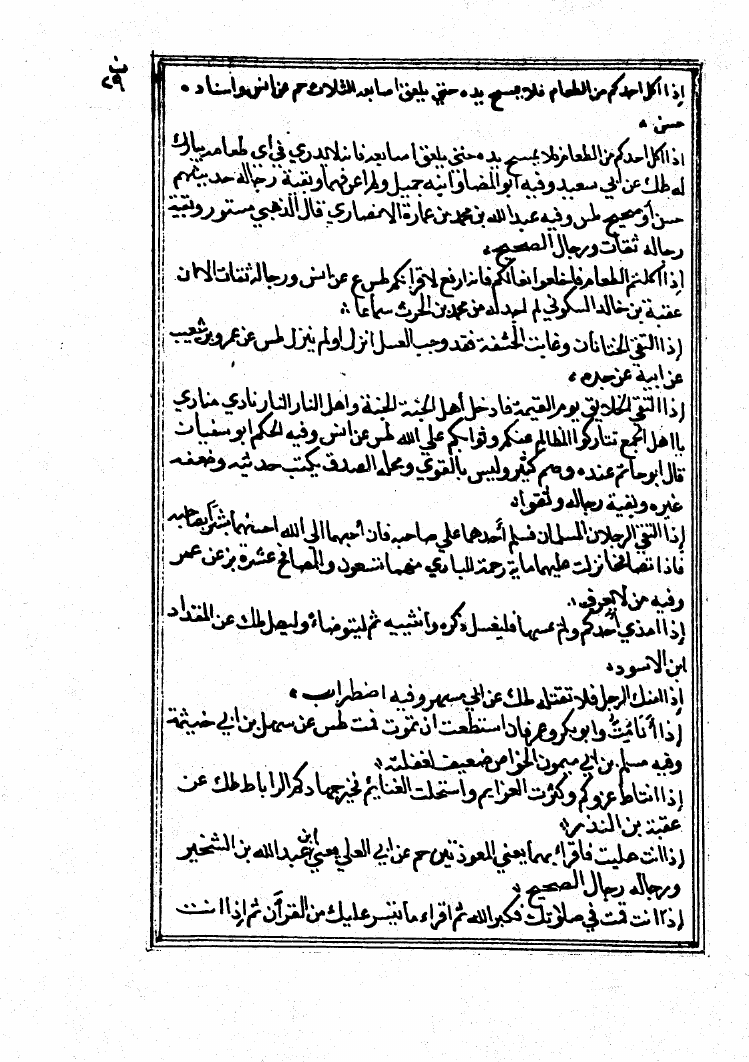 ن ٢٩
إذا أكل احدكم من الطعام فلا يمسح يده حتي يلعق اصابعه الثلاث حم عن انس واسناده
حسن
اذا اكل احدكم من الطعام فلا يمسح يده حتي يلعق أصابعه فانه لا يدري في اي طعامه يبارك
له طك عن ابي سعيد وفيه ابو المضا وابنه جميل ولم اعرفهما وبقية رجاله حديثهم
حسن أو صحيح لمس وفيه عبد الله بن محمد بن عمارة الانصاري قال الذهبي مستور وبقية
رجاله ثقات ورجال الصحيح
إذا أكلتم الطعام فاخلعوا نعالكم فانه اروح لاقدامكم طس ع عن انس ورجاله ثقات الا ان
عقبة بن خالد السكوني لم اجد له من محمد بن الحرث سماعا
إذا التقي الختانان وغابت الحشفة فقد وجب الغسل انزل او لم ينزل طس عن عمرو بن شعيب
عن ابية عن جده
إذا التقي الخلايق يوم القيمة فادخل أهل الجنة الجنة واهل النار النار نادي منادي
يا اهل الجمع تتاركوا المظالم عنكم وثوابكم علي الله طس عن انس وفيه الحكم ابو سفيان
قال ابو حاتم عنده وهم كثير وليس بالقوي ومحله الصدق يكتب حديثه وضعفه
غيره وبقية رجاله وثقوا
إذا التقي الرجلان المسلمان فسلم أحدهما علي صاحبه فان أحبهما الي الله احسنهما بشرا بصاحبه
فاذا تصافحا نزلت عليهما ماية رحمة للبادي منهما تسعون وللمصافح عشرة بز عن عمر
وفيه من لا يعرف
إذا امذي أحدكم ولم يمسها فليغسل ذكره وانثييه ثم ليتوضاء وليصل طك عن المقداد
ابن الاسود
إذا امنك الرجل فلا تقتله طك عن ابي مسهر وفيه اضطراب
إذا أنا مُتُّ وابو بكر وعمر فان استطعت ان تموت فمت طس عن سهل بن ابي خيثمة
وفيه مسلم بن ابي ميمون الخواص ضعيف لغفلته
إذا انتاط غزوكم وكثرت العزايم واستحلت الغنايم فخير جهادكم الرباط طك عن
عقبة بن الندر
إذا انت صليت فاقراء بهما يعني المعوذتين حم عن ابي العلي يعني ابن عبد الله بن الشخير
ورجاله رجال الصحيح
إذا انت قمت في صلاتك فكبر الله ثم اقراء ما تيسر عليك من القرآن ثم إذا انت